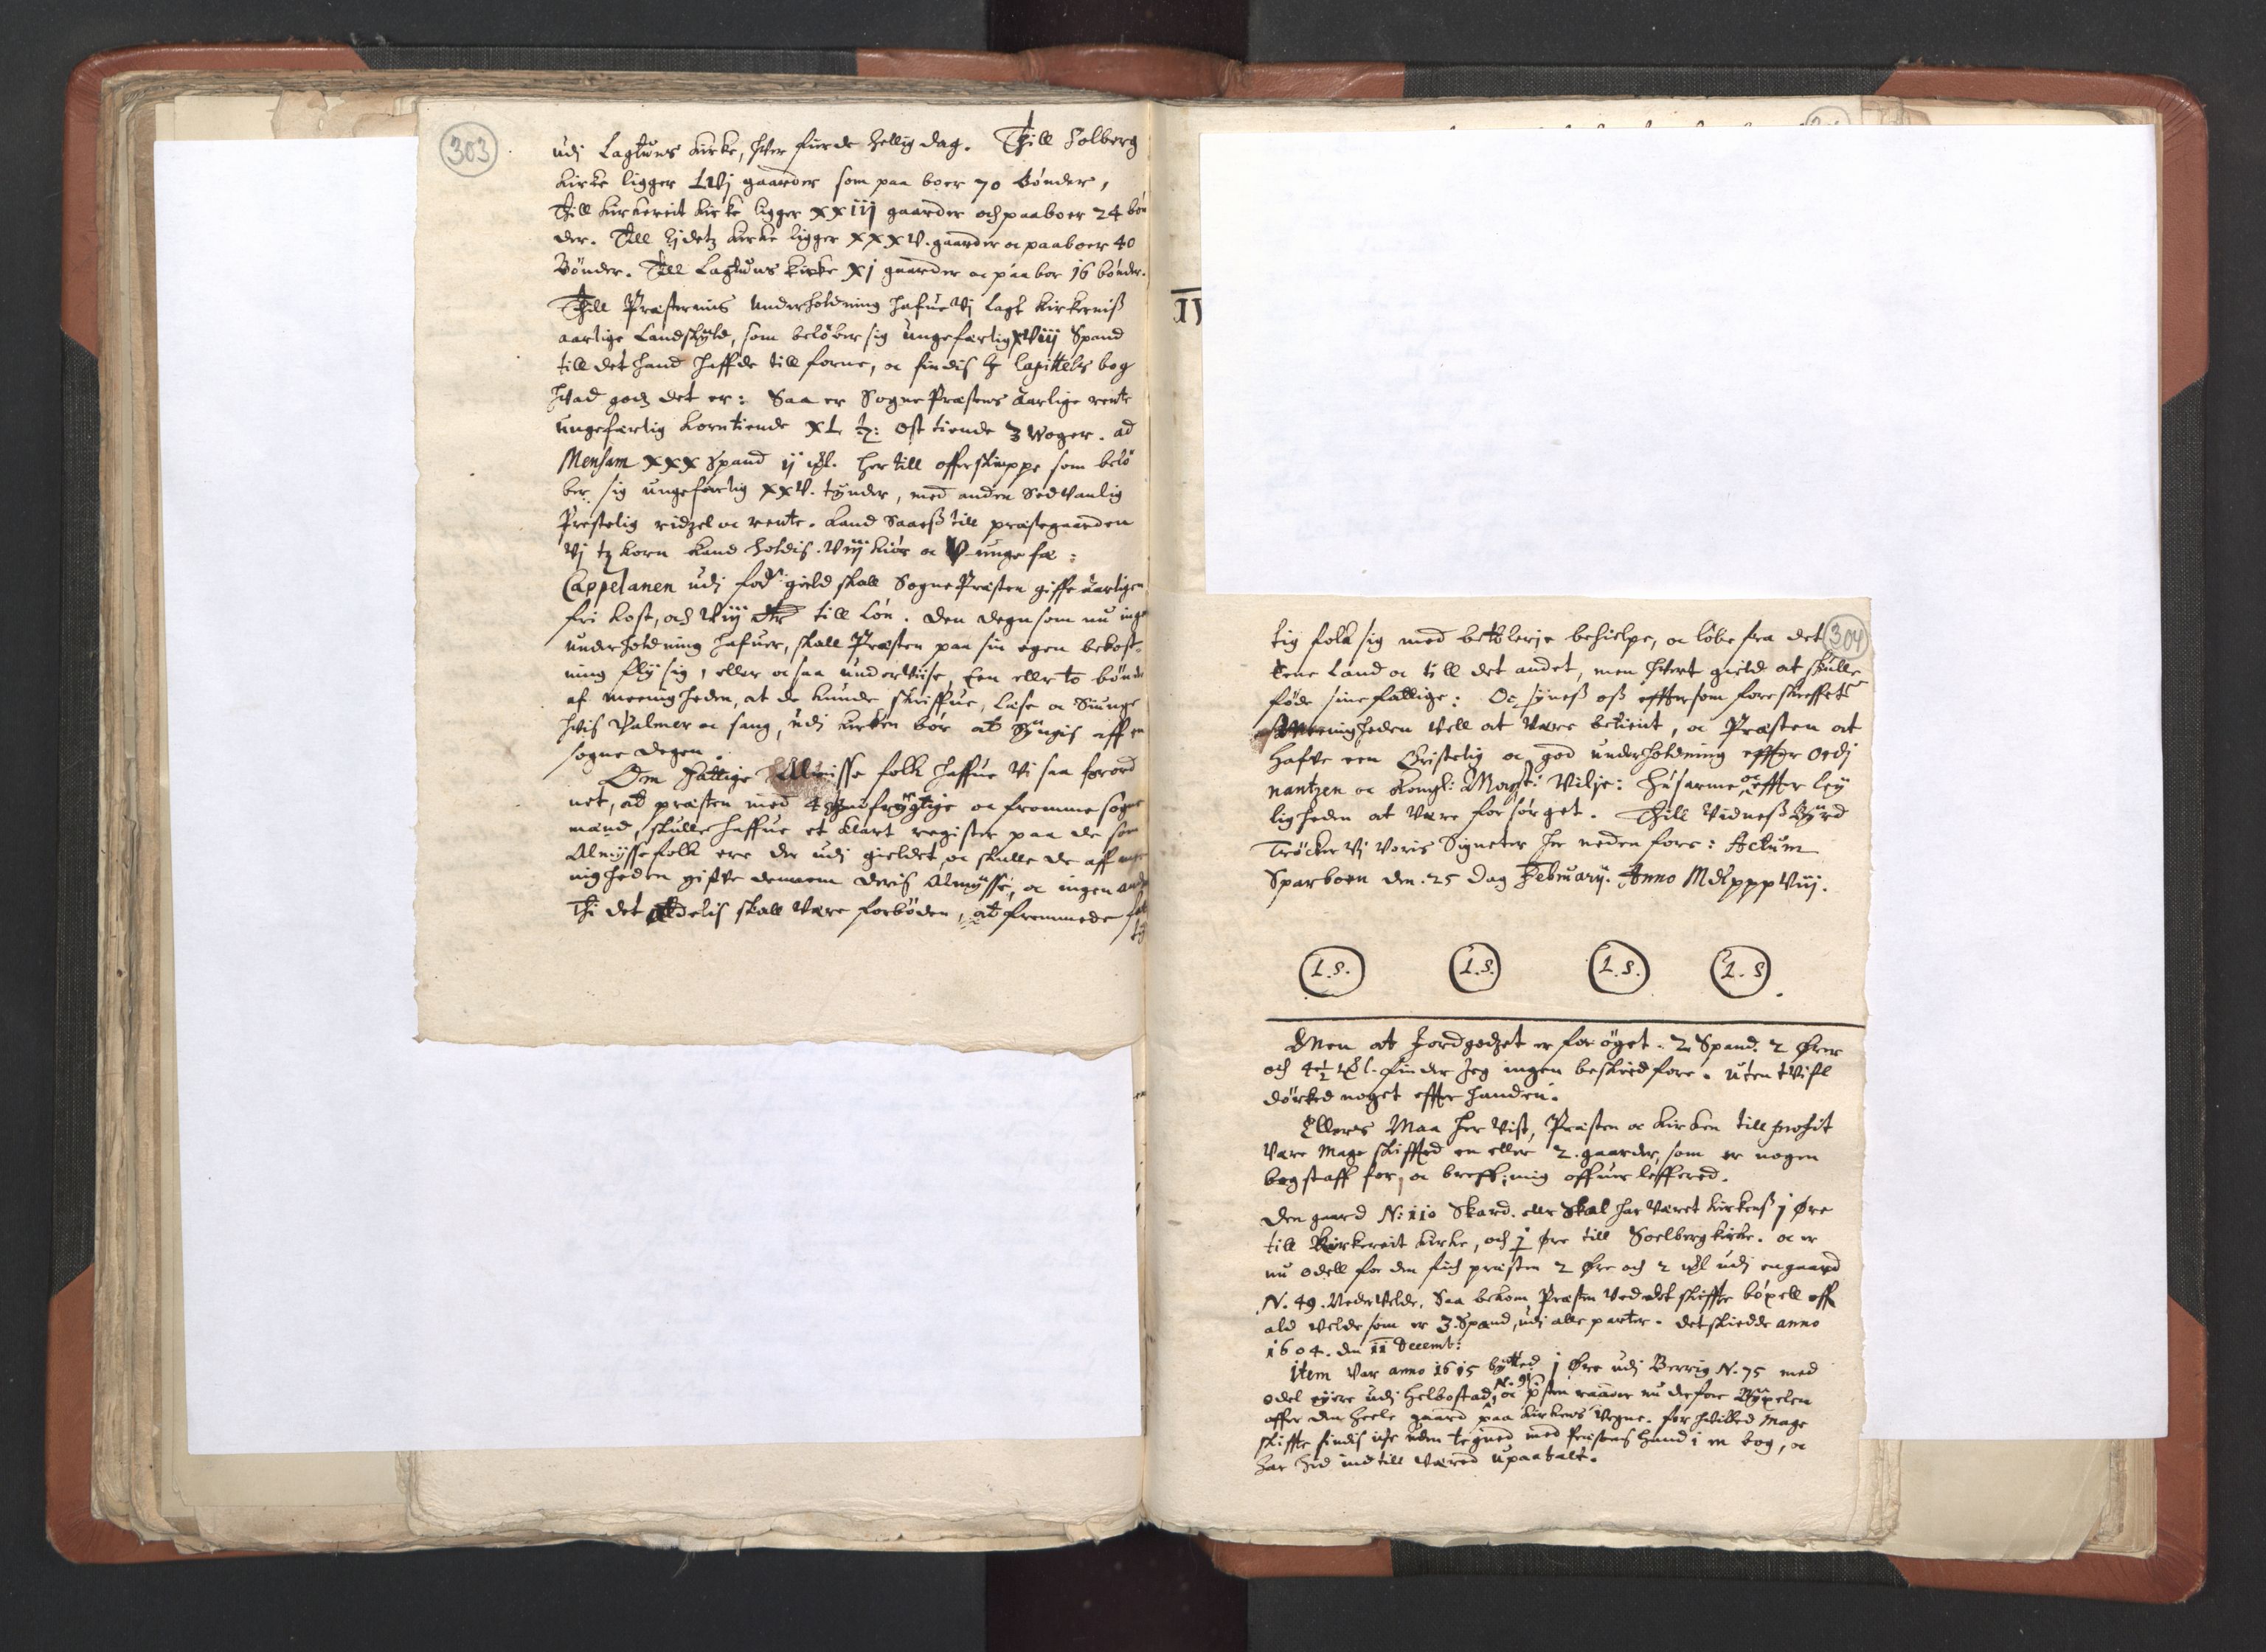 303
udi Lagtuns Kirke, hver fierde hellig dag. Till Solberg
Kirke ligger LVj gaarder som paa boer 70 Bönder,
Till Kirkereit Kirke ligger XXiij gaarder och paaboer 24 bön
der. Till Hjdetz Kirke ligger XXXV. gaarder oc paaboer 40
Bönder. Till Lagtuns Kirke Xj gaarder oc paa bor 16 bönder.
Till Præsternis Underholdning hafue Vj lagt Kirkerniß
aarlige Landskyld, som belöber sig ungefærlig XViij Spand
till det hand haffde till forne, oc findis Capittels bog
hvad godz det er: Saa er Sogne Præstens aarlige rente
ungefærlig Korntiende XL tz: Ost tiende 3 Woger. ad
Mensam XXX Spand ij ul. her till offerskieppe som belö
ber sig ungefærlig XXV. tynder, med anden Sedvanlig
Prestelig ridzel oc rente. Kand Saaeß till præstegaarden
Vj tz Korn kand holdis. Viij Kiör oc V ungefæ:
Cappelanen udi gield skall Sogne Præsten giffe aarligen
fri kost, och Viij till Lön. Den Degn som nu ingen
underholdning hafuer, skall Præsten paa sin egen bekost-
ning fly sig, eller oc saa underviise, Een eller to bönder
af meenigheden, at de kunde skriffue, læse oc Siunge
hvis Psalmer oc sang, udi Kirken bör at Syngis aff en
sogne Degen.
Om fattige Almisse folk haffue Vi saa forord
net, at præsten med 4 gudfrygtige oc fromme sogne
mænd, skulle haffue et klart register paa de som
Almysse folk ere der udi gieldet, oc skulle de aff mee
nigheden gifve dennem deris Almysse, oc ingen andre
Thi det aldelis skall være forböden, at fremmede fat
tig
304
tig folk sig med betlerje behielpe, oc löbe fra det
Eene Land oc till det andet, men hvert gield at skulle
föde sine fattige: Oc synes oß effter som foreskreffet
Meenigheden vell at være betient, oc Præsten at
hafve een Christelig oc god underholdning effter Ordi
nantzen oc Kongl: Mayst: Vilje: husarme oc effter ley
ligheden at være forsörget. Till Vidneß Byrd
Tröcker Vj voris Signeter her neden fore: Actum
Sparboen den. 25 dag Februarij. Anno MdLXXXViij.
L.S. L.S. L.S. L.S.
Men at Jordgodzet er foröget. 2 Spand. 2 Örer
och 4 1/2 finder Jeg ingen beskeed fore. uten tvifl
dörked noget effter handen.
Ellers Maa her vist, Præsten oc Kirken till profit
være Mage skifft ed en eller 2. gaarder, som er nogen
bogstaff for, oc breff: mig offuer leffered.
Den gaard N: 110 Skard. eller Skal har været Kirkens j Öre
till Kirkereit Kirke, och j Öre till Soelberg Kirke. oc er
nu odell for den fich præsten 2 Öre och 2 udi en gaard
N. 49. Nedervelde. Saa bekom Præsten ved det skiffte böxell off
ald velde som er 3. Spand, udi alle parter. det skiedde anno
1604. den 11 Decemb:
Item Var anno 1615 bytted j Öre udi Berrig N. 75 med
odel eyere udi Helbostad, N. 91. oc præsten raader nu derfore Byxelen
offer den heele gaard paa Kirkens Vegne. for huilcked Mage
skiffte findis icke uden tegned med Præstens hand i m bog, oc
har hid ind till været upaatalt.